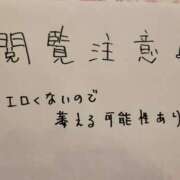 閲覧注意
エロくないので
萎える可能性あり